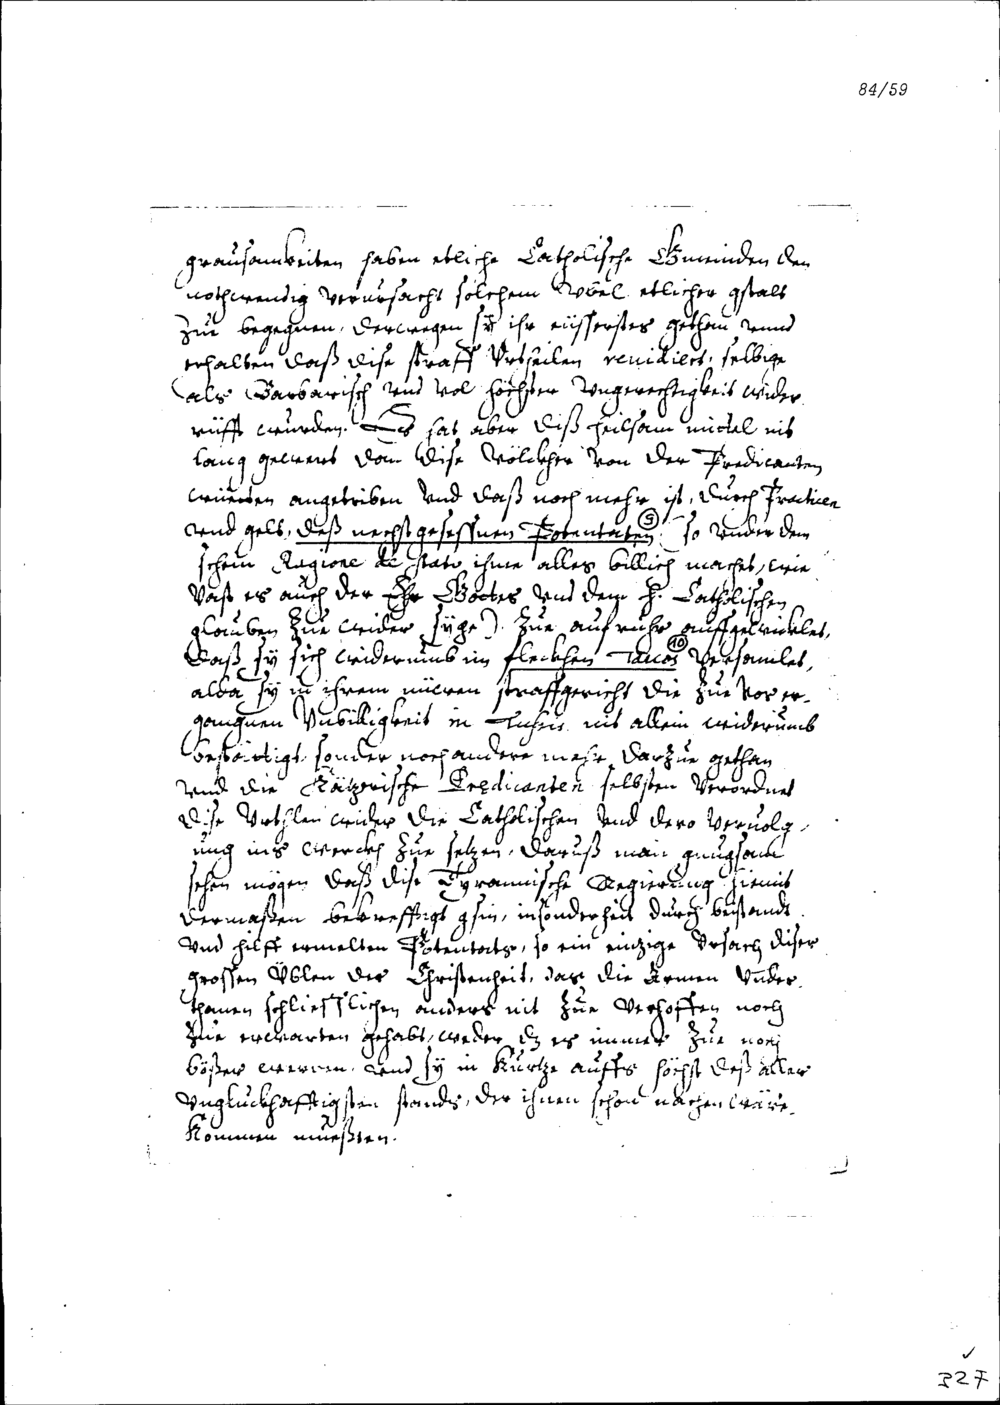 84/59
grausamkeiten haben etliche Catholische Gmeinden den
nothwendig verursacht solchem übel etlicher gstalt
zue begegnen, derwegen sÿ ihr eüsserstes gethan vnnd
erhalten daß dise straff Urtheilen revidiert, selbige
als Barbarisch vnd vol höchster vngerechtigkeit wider
rüfft wurden. Es hat aber diß heilsam mittel nit
lang gewert dan dise völckher von den Predicanten
angetriben vnd daß noch mehr ist, durch Practicen
vnd gelt, deß nechstgesessnen Potentaten (9) so vnder dem
schein Ragione de stato ihme alles billich machet, wie
vast es auch der Ehr Gottes vnd dem H. Catholischen
glauben zue wider sÿge) zue aufruhr auffgewicklet,
daß sÿ sich widerumb im fleckhen Tauos (10) versamlet,
alda sÿ in ihrem nüwen straffgericht die zue vor er-
gangnen Vnbilligkeit in Tusis nit allein widerumb
bestättigt, sonder noch andere mehr darzue gethan
vnd die Kätzerische Predicanten selbsten verordnet
dise Urthlen wider die Catholischen vnd dero veruolg-
ung ins werckh zue setzen, daruß man gnugsam
sehen mögen daß dise Tyrannische Regierung hiemit
dermaßen bekrefftigt gsin, insonderheit durch beistandt
vnd hilff ermelten Potentats, so ein einzige vrsach diser
grossen Üblen der Christenheit, das die Armen Vnder-
thanen schliesslichen anders nit zue verhoffen noch
zue erwarten gehabt, weder dz es immer zue noch
bößer werden, vnd sÿ in kurtze auffs höchst deß aller
vngluckhafftigsten stands, der ihnen schon nachen wäre,
kommen mueßten.
327